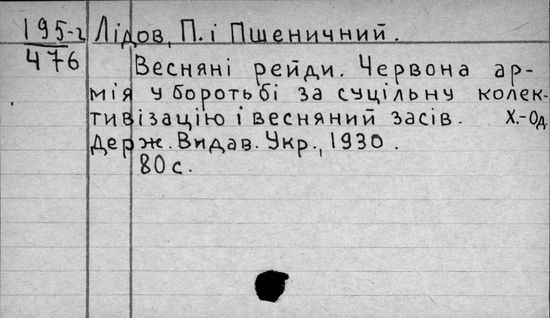 195-г Лідов, П. і Пшеничний.
476
Весняні рейди. Червона ар-
мія у боротьбі за суцільну колек-
тивізацію і весняний засів. Х.-Од.
Держ. Видав. Укр., 1930.
80 с.